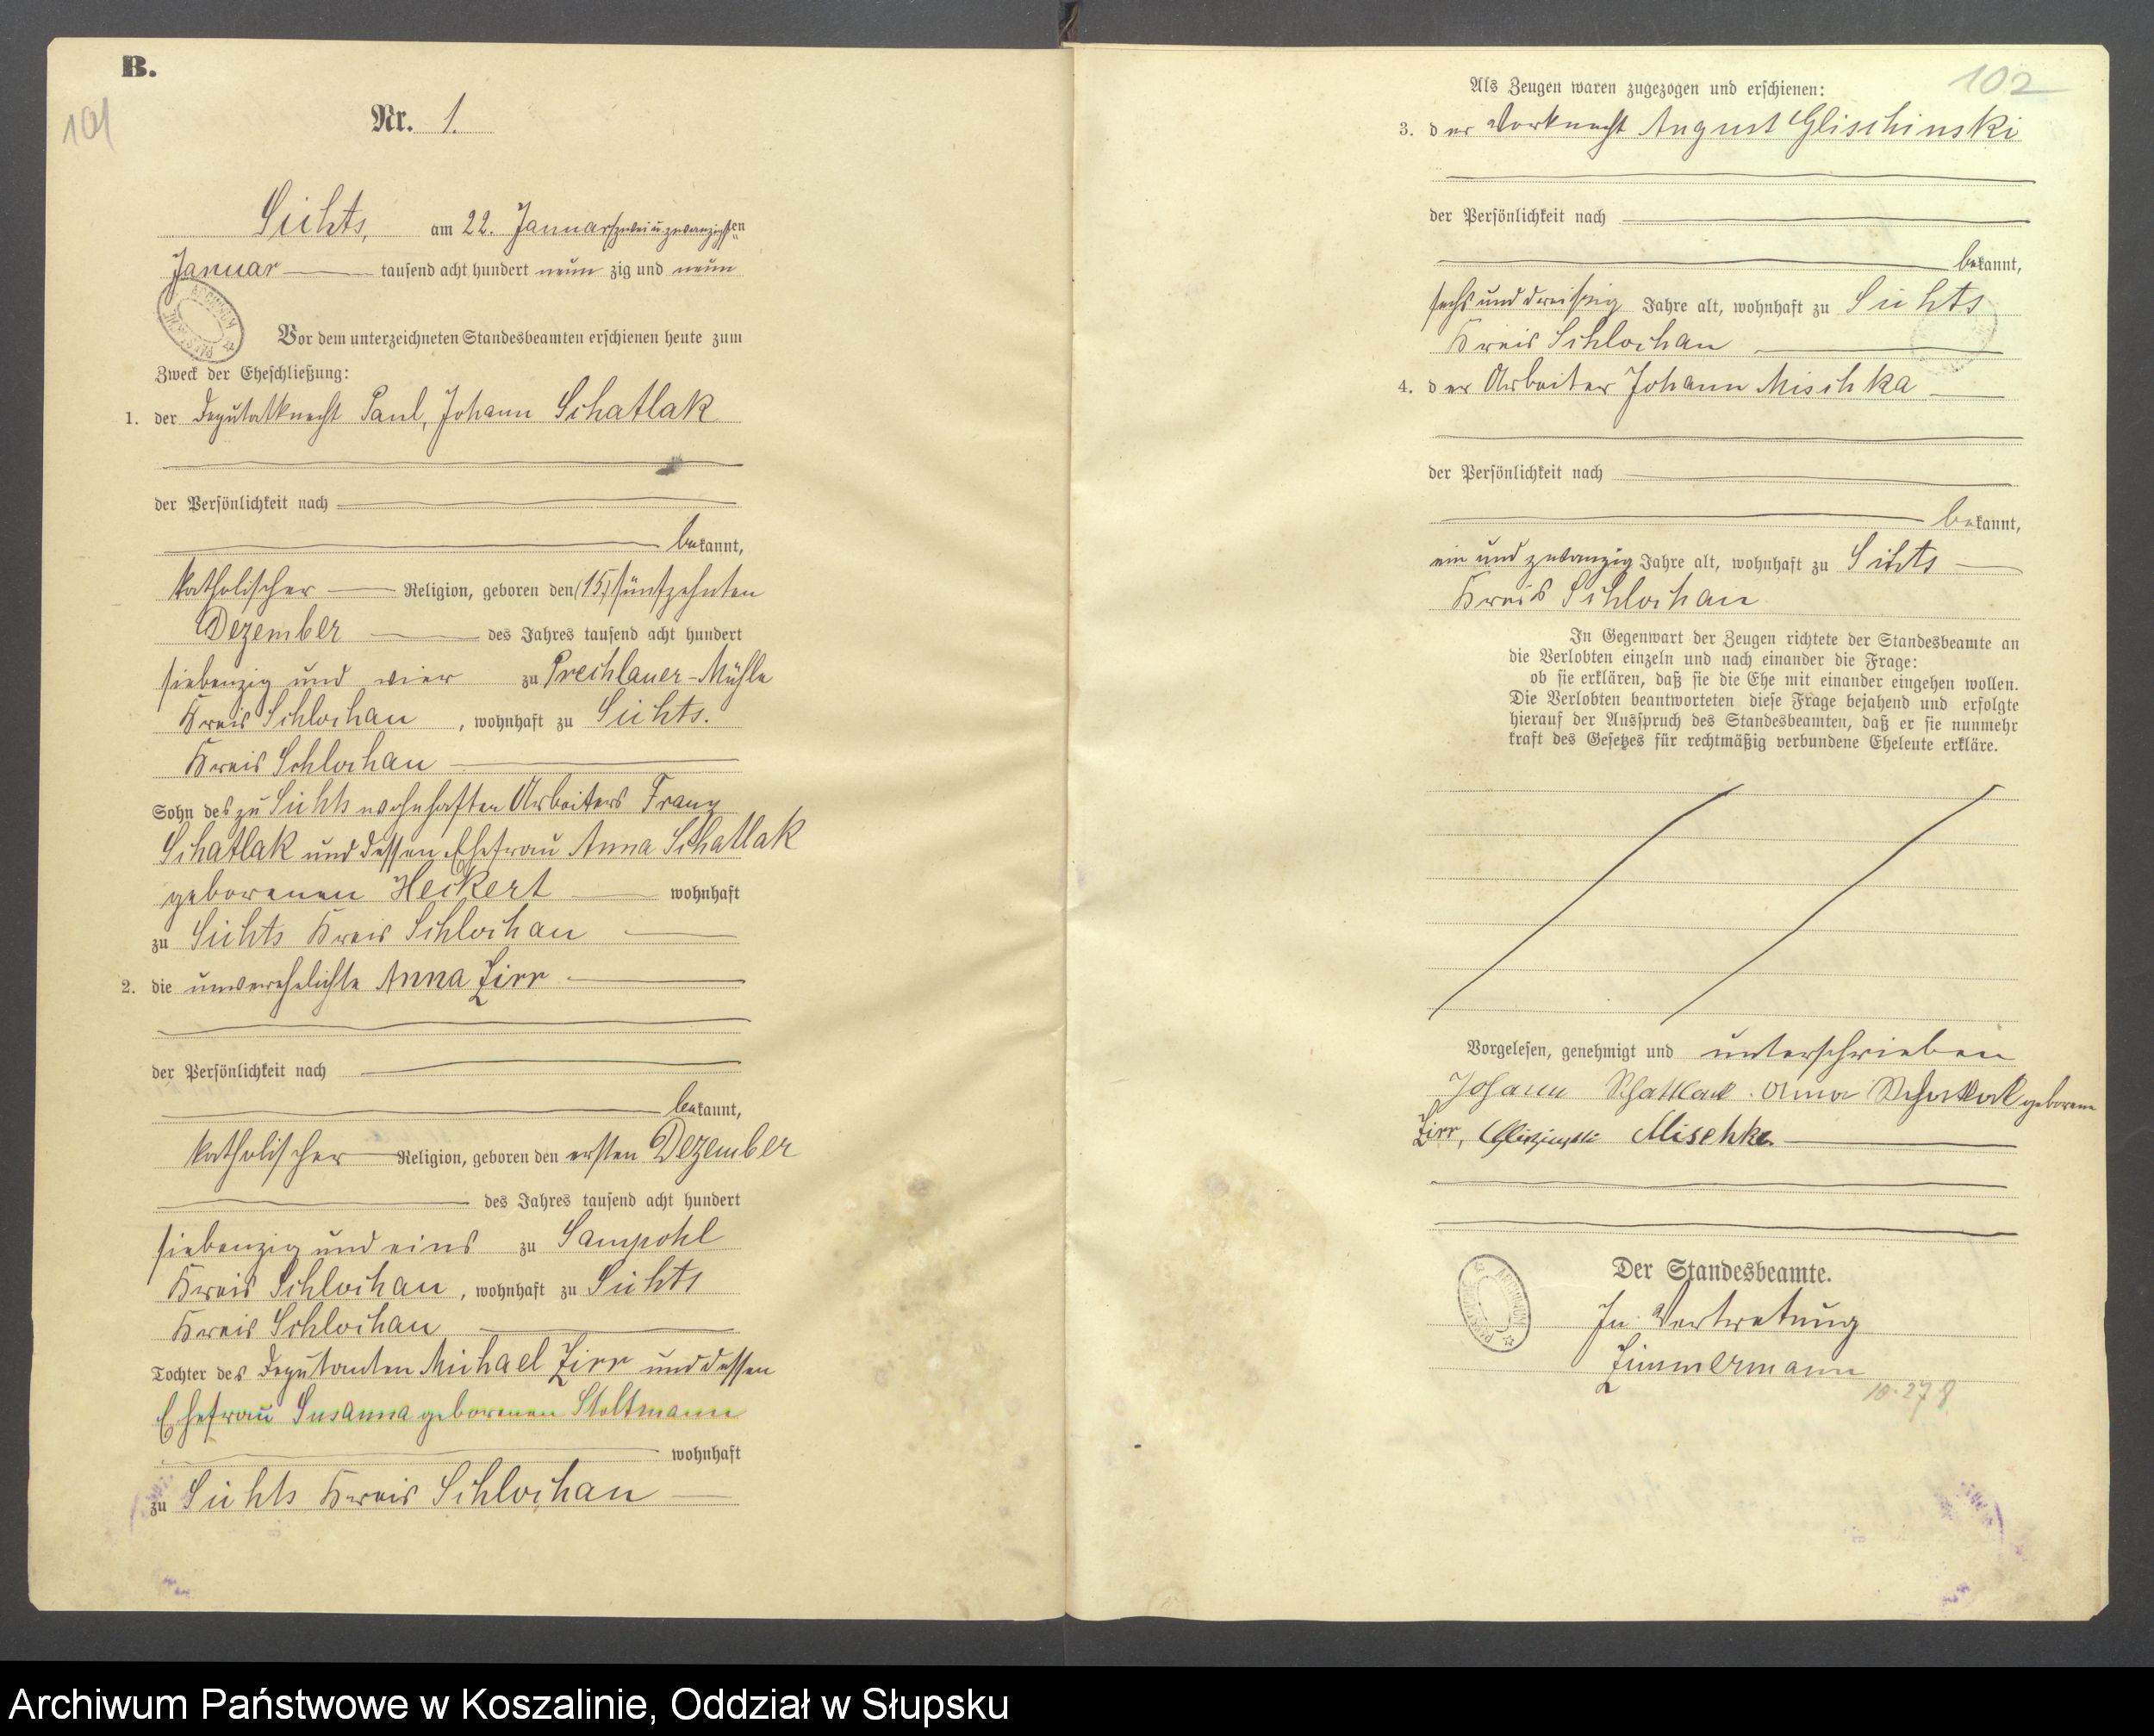 B.
101
Nr. 1.
Sichts, am 22. Januar (zwei u. zwanzigsten
Januar tausend acht hundert neun zig und neun
Vor dem unterzeichneten Standesbeamten erschienen heute zum
Zweck der Eheschließung:
1. der Deputatknecht Paul, Johann Schatlak
der Persönlichkeit nach
bekannt,
katholischer Religion, geboren den (15) fünfzehnten
Dezember des Jahres tausend acht hundert
siebenzig und vier zu Prechlauer-Mühle
Kreis Schlochau, wohnhaft zu Sichts.
Kreis Schlochau
Sohn des zu Sichts wohnhaften Arbeiters Franz
Schatlak und dessen Ehefrau Anna Schatlak
geborenen Heckert wohnhaft
zu Sichts Kreis Schlochau
2. die unverehelichte Anna Zirr
der Persönlichkeit nach
bekannt,
katholischer Religion, geboren den ersten Dezember
des Jahres tausend acht hundert
siebenzig und eins zu Sampohl
Kreis Schlochau, wohnhaft zu Sichts
Kreis Schlochau
Tochter des Deputanten Michael Zirr und dessen
Ehefrau Susanna geborenen Stoltmann
wohnhaft
zu Sichts Kreis Schlochau
102
Als Zeugen waren zugezogen und erschienen:
3. der Vorknecht August Glischinski
der Persönlichkeit nach
bekannt,
sechs und dreißig Jahre alt, wohnhaft zu Sichts
Kreis Schlochau
4. der Arbeiter Johann Mischka
der Persönlichkeit nach
bekannt,
ein und zwanzig Jahre alt, wohnhaft zu Sichts
Kreis Schlochau
In Gegenwart der Zeugen richtete der Standesbeamte an
die Verlobten einzeln und nach einander die Frage:
ob sie erklären, daß sie die Ehe mit einander eingehen wollen.
Die Verlobten beantworteten diese Frage bejahend und erfolgte
hierauf der Ausspruch des Standesbeamten, daß er sie nunmehr
kraft des Gesetzes für rechtmäßig verbundene Eheleute erkläre.
Vorgelesen, genehmigt und unterschrieben
Johann Schattlack Anna Schatlak geborene
Zirr, Mischka
Der Standesbeamte.
In Vertretung
Zimmermann
Archiwum Państwowe w Koszalinie, Oddział w Słupsku